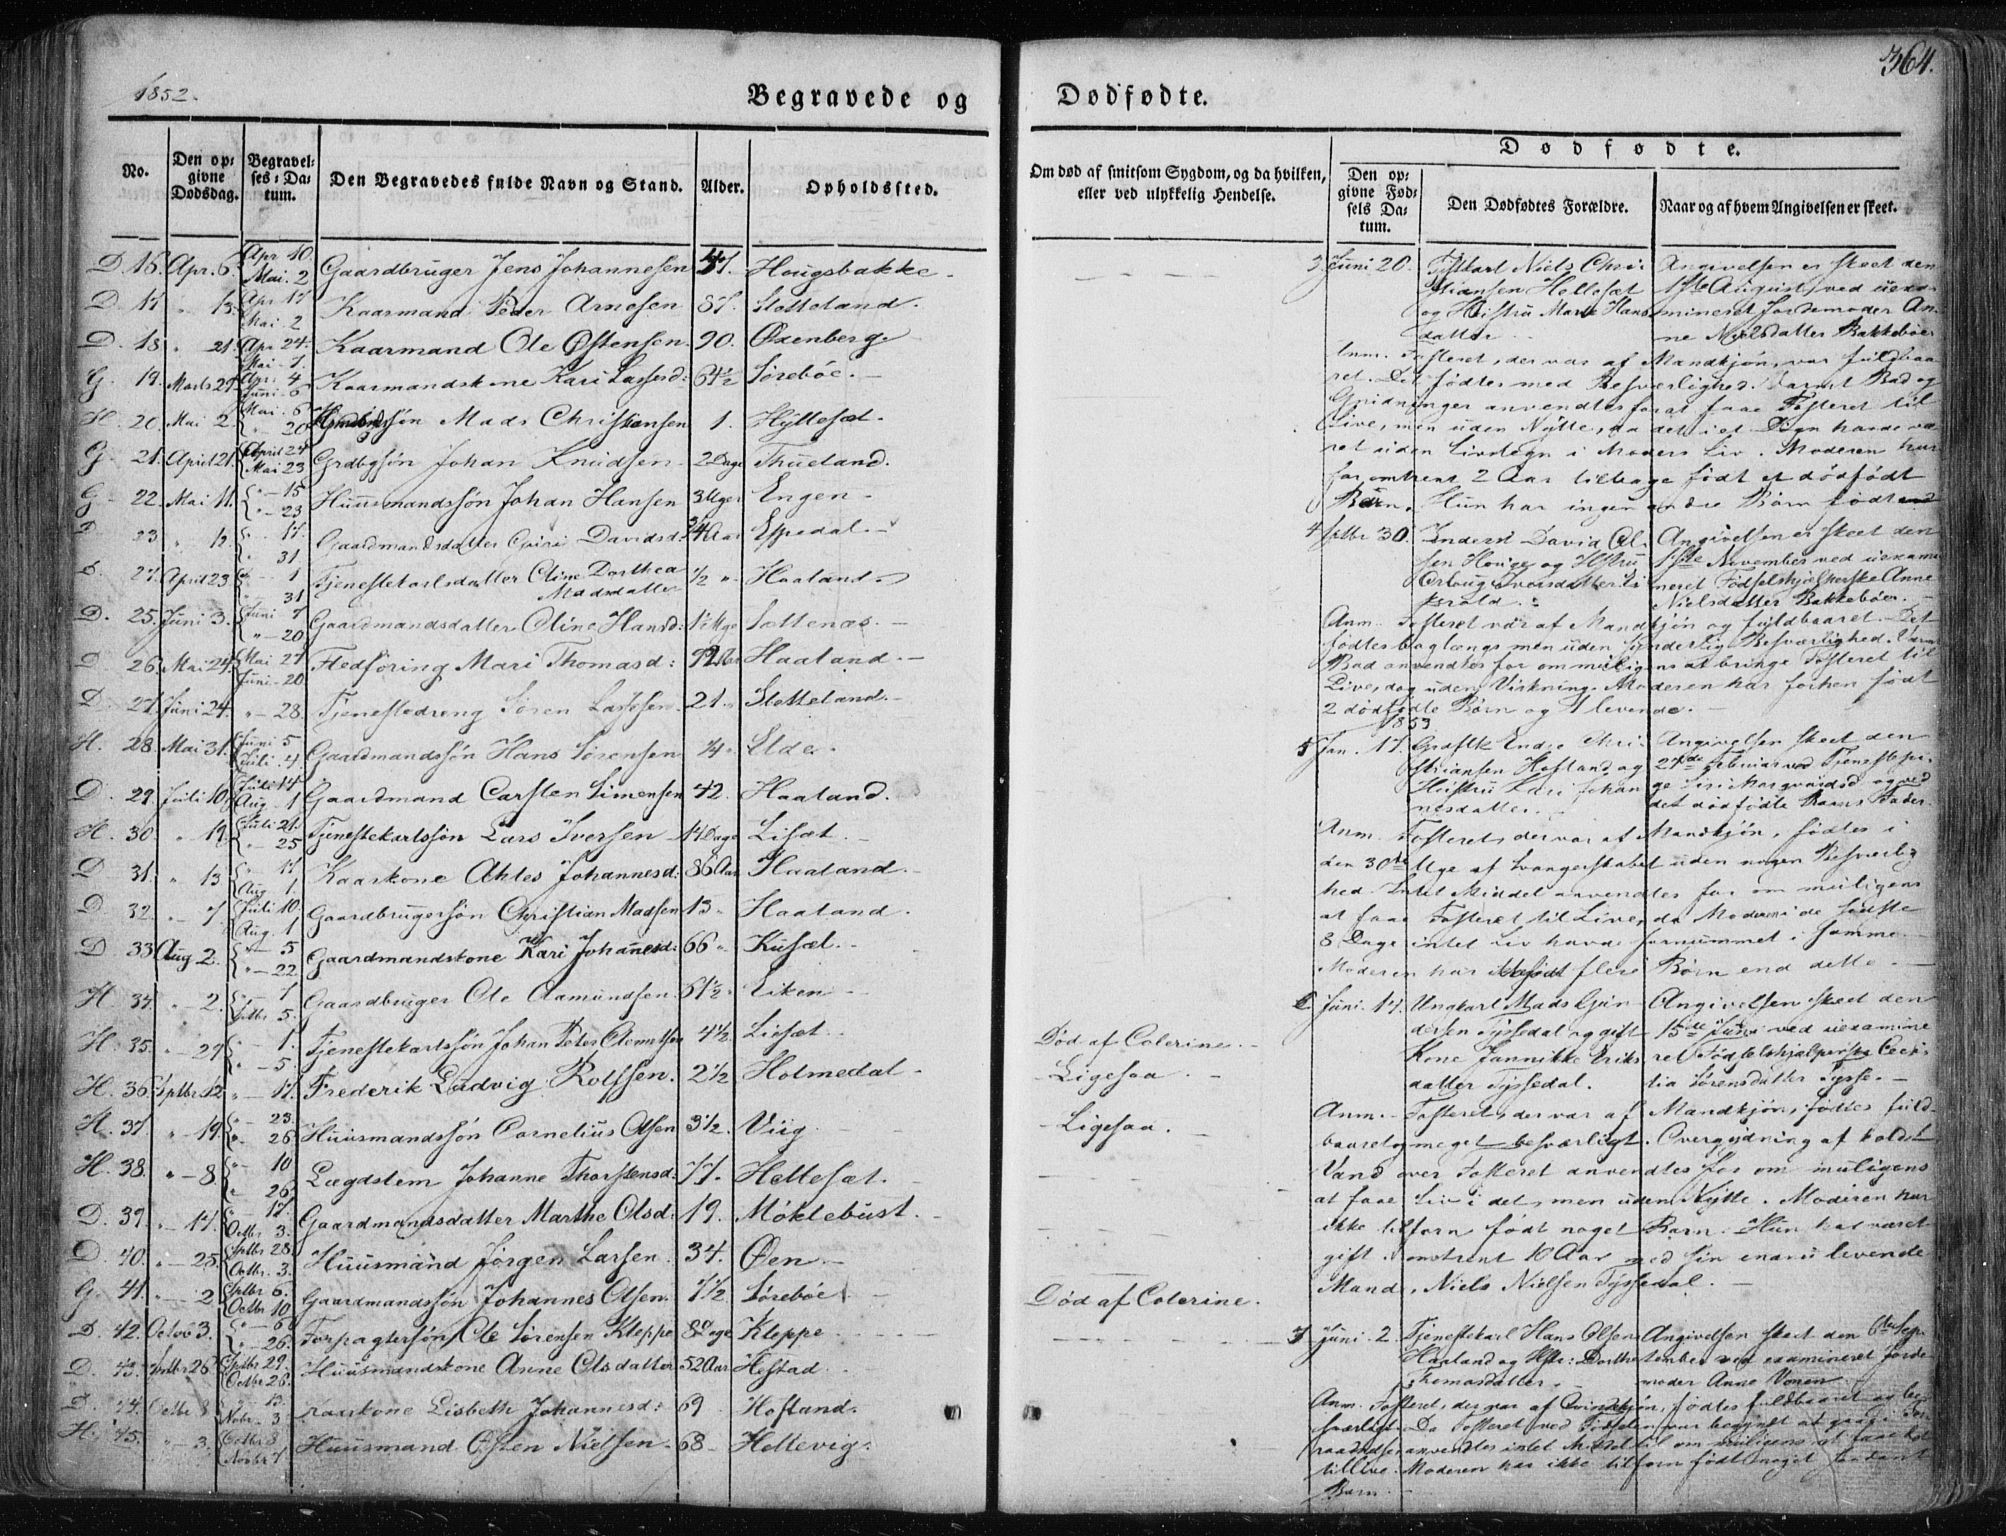 1852.
Begravede og
Dødfødte.
364.
No.
Den opgivne Dødsdag.
Begravelses-Datum.
Den Begravedes fulde Navn og Stand.
Alder.
Opholdssted.
Om død af smitsom Sygdom, og da hvilken, eller ved ulykkelig Hendelse.
Dødfødte.
Den opgivne Fødsels Datum.
Den Dødfødtes Forældre.
Naar og af hvem Angivelsen er skeet.
D. 16. Apr. 6. Apr 10. Mai. 2 Gaardbruger Jens Johannesen Hougsbakke.
D. 17 " 13. Apr 17 Mai. 2 Kaarmand Peder Arnesen 87. Slotteland.
D. 18 " 21. Apr 24. Mai. Kaarmand Ole Østensen 90. Oxenberg
G. 19. Marts 27 Apr. 4 Juni. 6 Kaarmandskone Kari Lassesd: 61½ Sørebøe.
H. 20. Mai 2. Mai. 6 " 20 Mads Christensen 1. Hyllesæt.
G. 21. April 21. April 24 Mai 23 Grdbgsøn Johan Knudsen 2 Dage Thueland.
G. 22. Mai 11. " 15 " 23 Huusmandssøn Johan Hansen 3 Uger Engen
D. 23 " 12 " 17 " 31 Gaardmandsdatter Davidsd: Espedal.
D. April 23 " 1 " 31 Tjenestekarlsdatter Oline Dorthea Madsdatter ½ " Haaland.
D. 25. Juni 3. Juni 7 " 20 Gaardmandsdatter Oline Hansd: Sottenæs.
D. 26. Mai 24. Mai 27 Juni 20 Fledføring Mari Thomasd: Haaland.
D. 27. Juni 24. " 28. Tjenestedreng Søren Lassen 21. Slotteland.
H. 28. Mai 31. Juni 5 Juli. 4 Gaardmandssøn Hans Sørensen Elde.
D. 29. Juli 10. Juli 14 Aug. 1 Gaardmand Carsten Simensen 42. Haaland.
H. 30. " 19. Juli 21. " 25 Tjenestekarlssøn Lars Iversen 14 Dage Lisæt.
D. 31. " 13 " 17 Aug. 1. Kaarkone Johannesd: 86 Aar Haaland.
D. 32. " 7. Juli 10. Aug. 1 Gaardbrugersøn Christian Madsen 13. Haaland.
D. 33 Aug 2. " 5 " 22 Gaardmandskone Kari Johannesd: 66 "
H. 34. " 2. " 7 Sptbr 5 Gaardbruger Ole Aamundsen 61½ Eiken
H. 35. " 29 " 1. " 5 Tjenestekarlssøn Johan Peter Clemetsen 4½ Lisæt. Død af Colerine.
H. 36. Sptbr 12 " 17 Frederik Ludvig Rolfsen. 2½ Holmedal Ligesaa.
H. 37 " 19. " 23. " 26. Huusmandssøn Cornelius Olsen 3½ Viig Ligesaa.
H. 38. " 8. " 10 " 26. Lægdslem Johanne Thorstensd: 77. Hellesæt.
D. 39. " 17 " 17. Octbr 3. Gaardmandsdatter Marthe Olsd: 19. Møklebust.
D. 40. " 25. Sptbr 28. Octbr. 3. Huusmand Jørgen Larsen. 34. Øen
G. 41. " 2. Sptbr 6. Octbr 10. Gaardmandssøn Johannes Olsen. 7½ Sørebøe Død af Colerine.
D. 42. 3. " 6 " 26. Forpagtersøn Ole Sørensen Kleppe 8 Dage Kleppe
D. 43. Sptbr 26 Sptbr 29. Octbr 26. Huusmandskone Anne Olsdatter 52 Aar Hestad
D. 44. Octbr 8 " 13 Nobr. 3 Kaarkone Lisbeth Johannesd: 69 Hofland.
H. 45. " 3. Octbr 8 Novbr 7. Huusmand Østen Nielsen. 68 Hellevig.
3 Juni 20. Niels Christiansen Hellesæt og Hustru Marie Hansdatter
Angivelsen er skeet den 1ste August, ved uexamineret Jordemoder Anne Nielsdatter Bakkebøe
Anm. Fosteret, der var af Mandkjøn, var fuldbaaret. Det fødtes med Besværlighed. Varmt Bad og
Gnidninger anvendtes forat faae Fosteret til
Live, men uden Nytte, da det i et Døgn havde været
uden Livstegn i Moders Liv. Moderen har
for omtrent 2 Aar tilbage født et dødfødt
Barn. Hun har ingen andre Børn født
4 Sptbr 30. Inderst David Olsen Houge og Hstru Iversdatter
Angivelsen er skeet den 1ste November ved uexamineret Fødselshjelperske Anne Nielsdatter Bakkebøe.
Anm. Fosteret var af Mandkjøn og fuldbaaret. Det
fødtes baglængs men uden synderlig Besværlighed. Varmt
Bad anvendtes for om muligens at bringe Fosteret til
Live, dog uden Virkning. Moderen har forhen født
2 dødfødte Børn og 1 levende.
1853
5 Jan. 17. Endre Christiansen Hofland og Hustru Kari Johannesdatter.
Angivelsen skeet den 27de Februar ved Tjenestepige Siri og ved det dødfødte Barns Fader.
Anm. Fosteret, der var af Mandkjøn, fødtes i
den 30te Uge af Svangerskabet uden nogen Besværlighed.
Intet Middel anvendtes for om muligens
at faae Fosteret til Live, da Moderen i de sidste
8 Dage intet Liv havde fornummet i samme.
Moderen har ikke født flere Børn end dette.
6 Juni. 14. Ungkarl Mads Tyssedal og gift Kone Jannikke Eriksdatter Tyssedal.
Angivelsen skeet den 15de Juni ved uexamineret Fødselshjælperske Sørensdatter Tysse.
Anm. Fosteret, der var af Mandkjøn, fødtes fuldbaaret
og meget besværligt. Overgydning af koldt
Vand over Fosteret anvendtes for om muligens
at faae Liv i det, men uden Nytte. Moderen har
ikke tilforn født noget Barn. Hun har været
gift omtrent 10 Aar med sin endnu levende
Mand, Niels Nielsen Tyssedal.
7 Juni. 2. Tjenestekarl Hans Olsen Haaland og Hstr: Dorthe Thomasdatter.
Angivelsen skeet den 6te September ved examineret Jordemoder Anne Vonen
Anm. Fosteret, der var af Qvindekjøn, fødtes fuldbaaret og besværligt. Da Fosteret ved Fødselen var begyndt at gaae i Forraadnelse
anvendtes intet Middel til om muligens at faae det
tillive. Moderen har ikke tilforn født noget saadant
Barn.